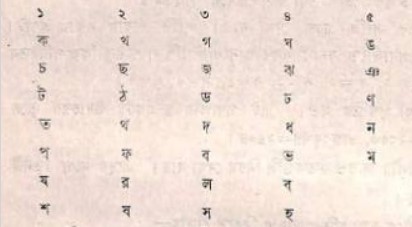 ১ ২ ৩ ৪ ৫
ক খ গ ঘ ঙ
চ ছ জ ঝ ঞ
ট ঠ ড ঢ ণ
ত থ দ ধ ন
প ফ ব ভ ম
য র ল ব
শ ষ স হ